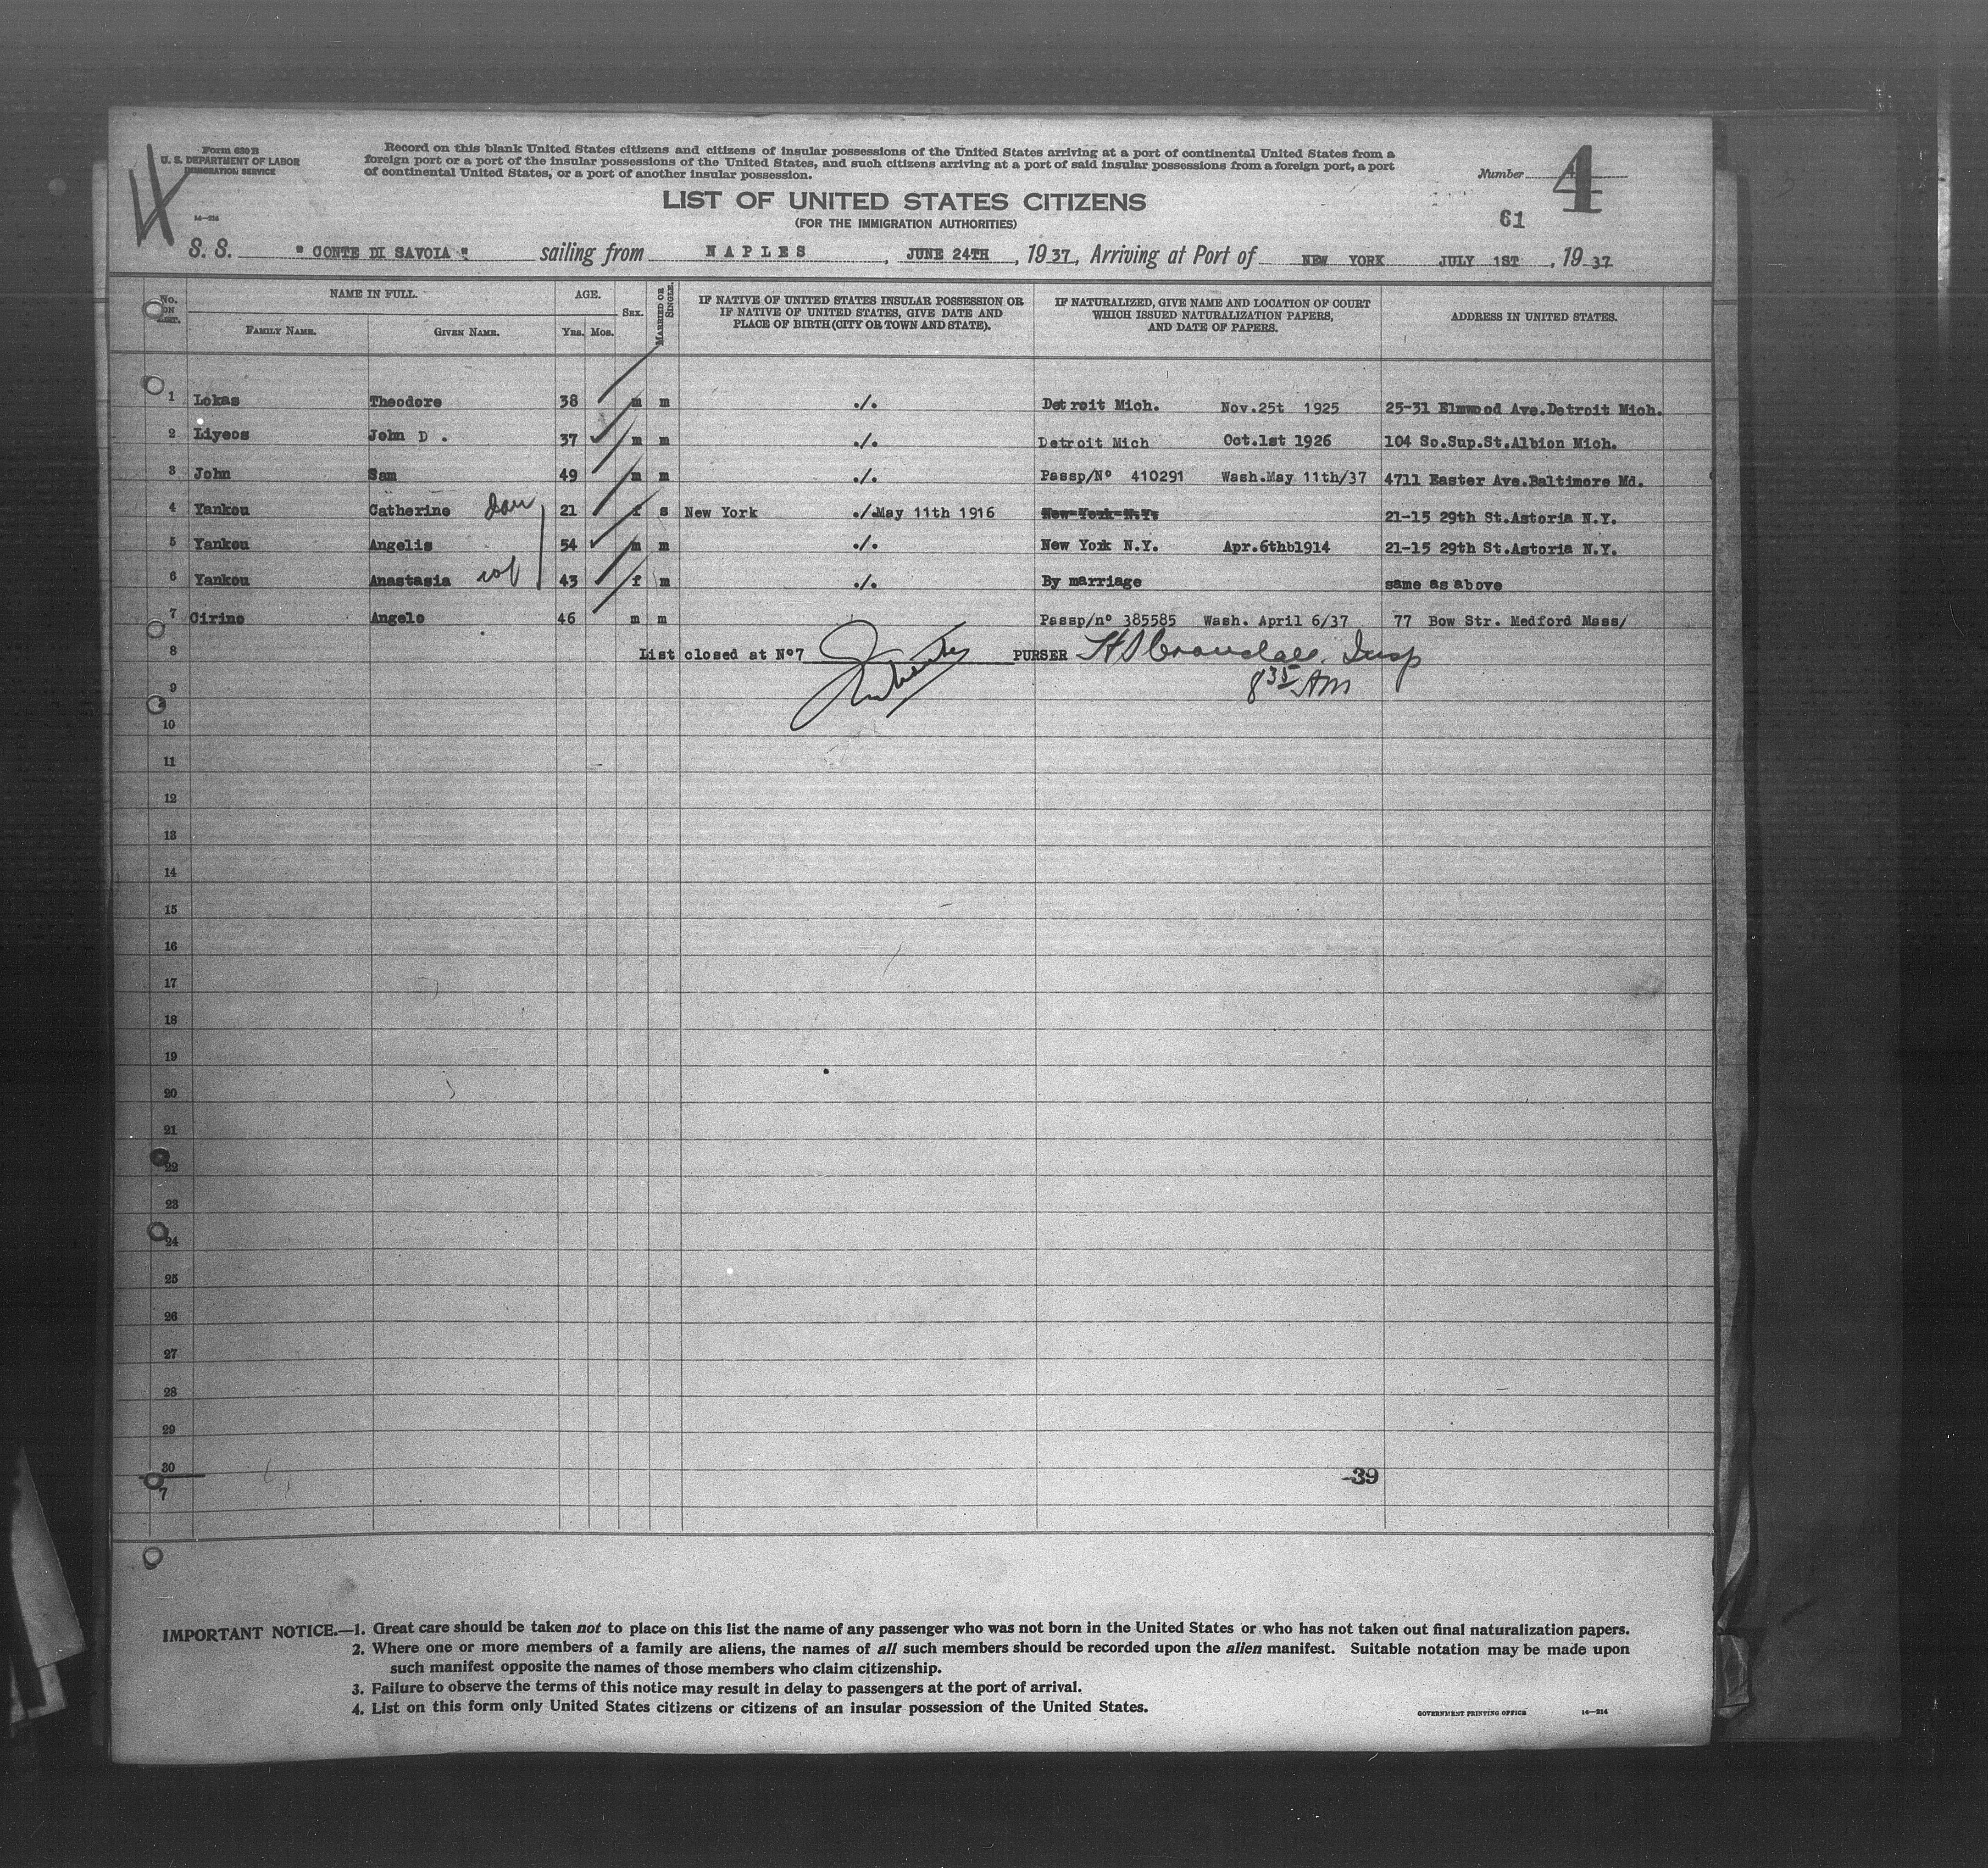 Form 630 B
U. S. DEPARTMENT OF LABOR
IMMIGRATION SERVICE
14—214
Record on this blank United States citizens and citizens of insular possessions of the United States arriving at a port of continental United States from a
foreign port or a port of the insular possessions of the United States, and such citizens arriving at a port of said insular possessions from a foreign port, a port
of continental United States, or a port of another insular possession.
Number 4
LIST OF UNITED STATES CITIZENS
(FOR THE IMMIGRATION AUTHORITIES)
61
S. S. " CONTE DI SAVOIA " sailing from NAPLES, JUNE 24TH, 1937, Arriving at Port of NEW YORK JULY 1ST, 1937
No. ON LIST. NAME IN FULL. FAMILY NAME. GIVEN NAME. AGE. Yrs. Mos. SEX. MARRIED OR SINGLE. IF NATIVE OF UNITED STATES INSULAR POSSESSION OR IF NATIVE OF UNITED STATES, GIVE DATE AND PLACE OF BIRTH (CITY OR TOWN AND STATE). IF NATURALIZED, GIVE NAME AND LOCATION OF COURT WHICH ISSUED NATURALIZATION PAPERS, AND DATE OF PAPERS. ADDRESS IN UNITED STATES.
1 Lokas Theodore 38 m m ./. Detroit Mich. Nov.25t 1925 25-31 Elmwood Ave.Detroit Mich.
2 Liyeos John D . 37 m m ./. Detroit Mich Oct.1st 1926 104 So.Sup.St.Albion Mich.
3 John Sam 49 m m ./. Passp/Nº 410291 Wash.May 11th/37 4711 Easter Ave.Baltimore Md.
4 Yankou Catherine dau 21 f s New York ./.May 11th 1916 New York N.Y. 21-15 29th St.Astoria N.Y.
5 Yankou Angelis 54 m m ./. New York N.Y. Apr.6thb1914 21-15 29th St.Astoria N.Y.
6 Yankou Anastasia wf 43 f m ./. By marriage same as above
7 Cirino Angelo 46 m m Passp/nº 385585 Wash. April 6/37 77 Bow Str. Medford Mass/
8 List closed at Nº7 PURSER H D Crandall, Insp
9 8 35 AM
10
11
12
13
14
15
16
17
18
19
20
21
22
23
24
25
26
27
28
29
30
7
-39
IMPORTANT NOTICE.—1. Great care should be taken not to place on this list the name of any passenger who was not born in the United States or who has not taken out final naturalization papers.
2. Where one or more members of a family are aliens, the names of all such members should be recorded upon the alien manifest. Suitable notation may be made upon
such manifest opposite the names of those members who claim citizenship.
3. Failure to observe the terms of this notice may result in delay to passengers at the port of arrival.
4. List on this form only United States citizens or citizens of an insular possession of the United States.
GOVERNMENT PRINTING OFFICE 14—214